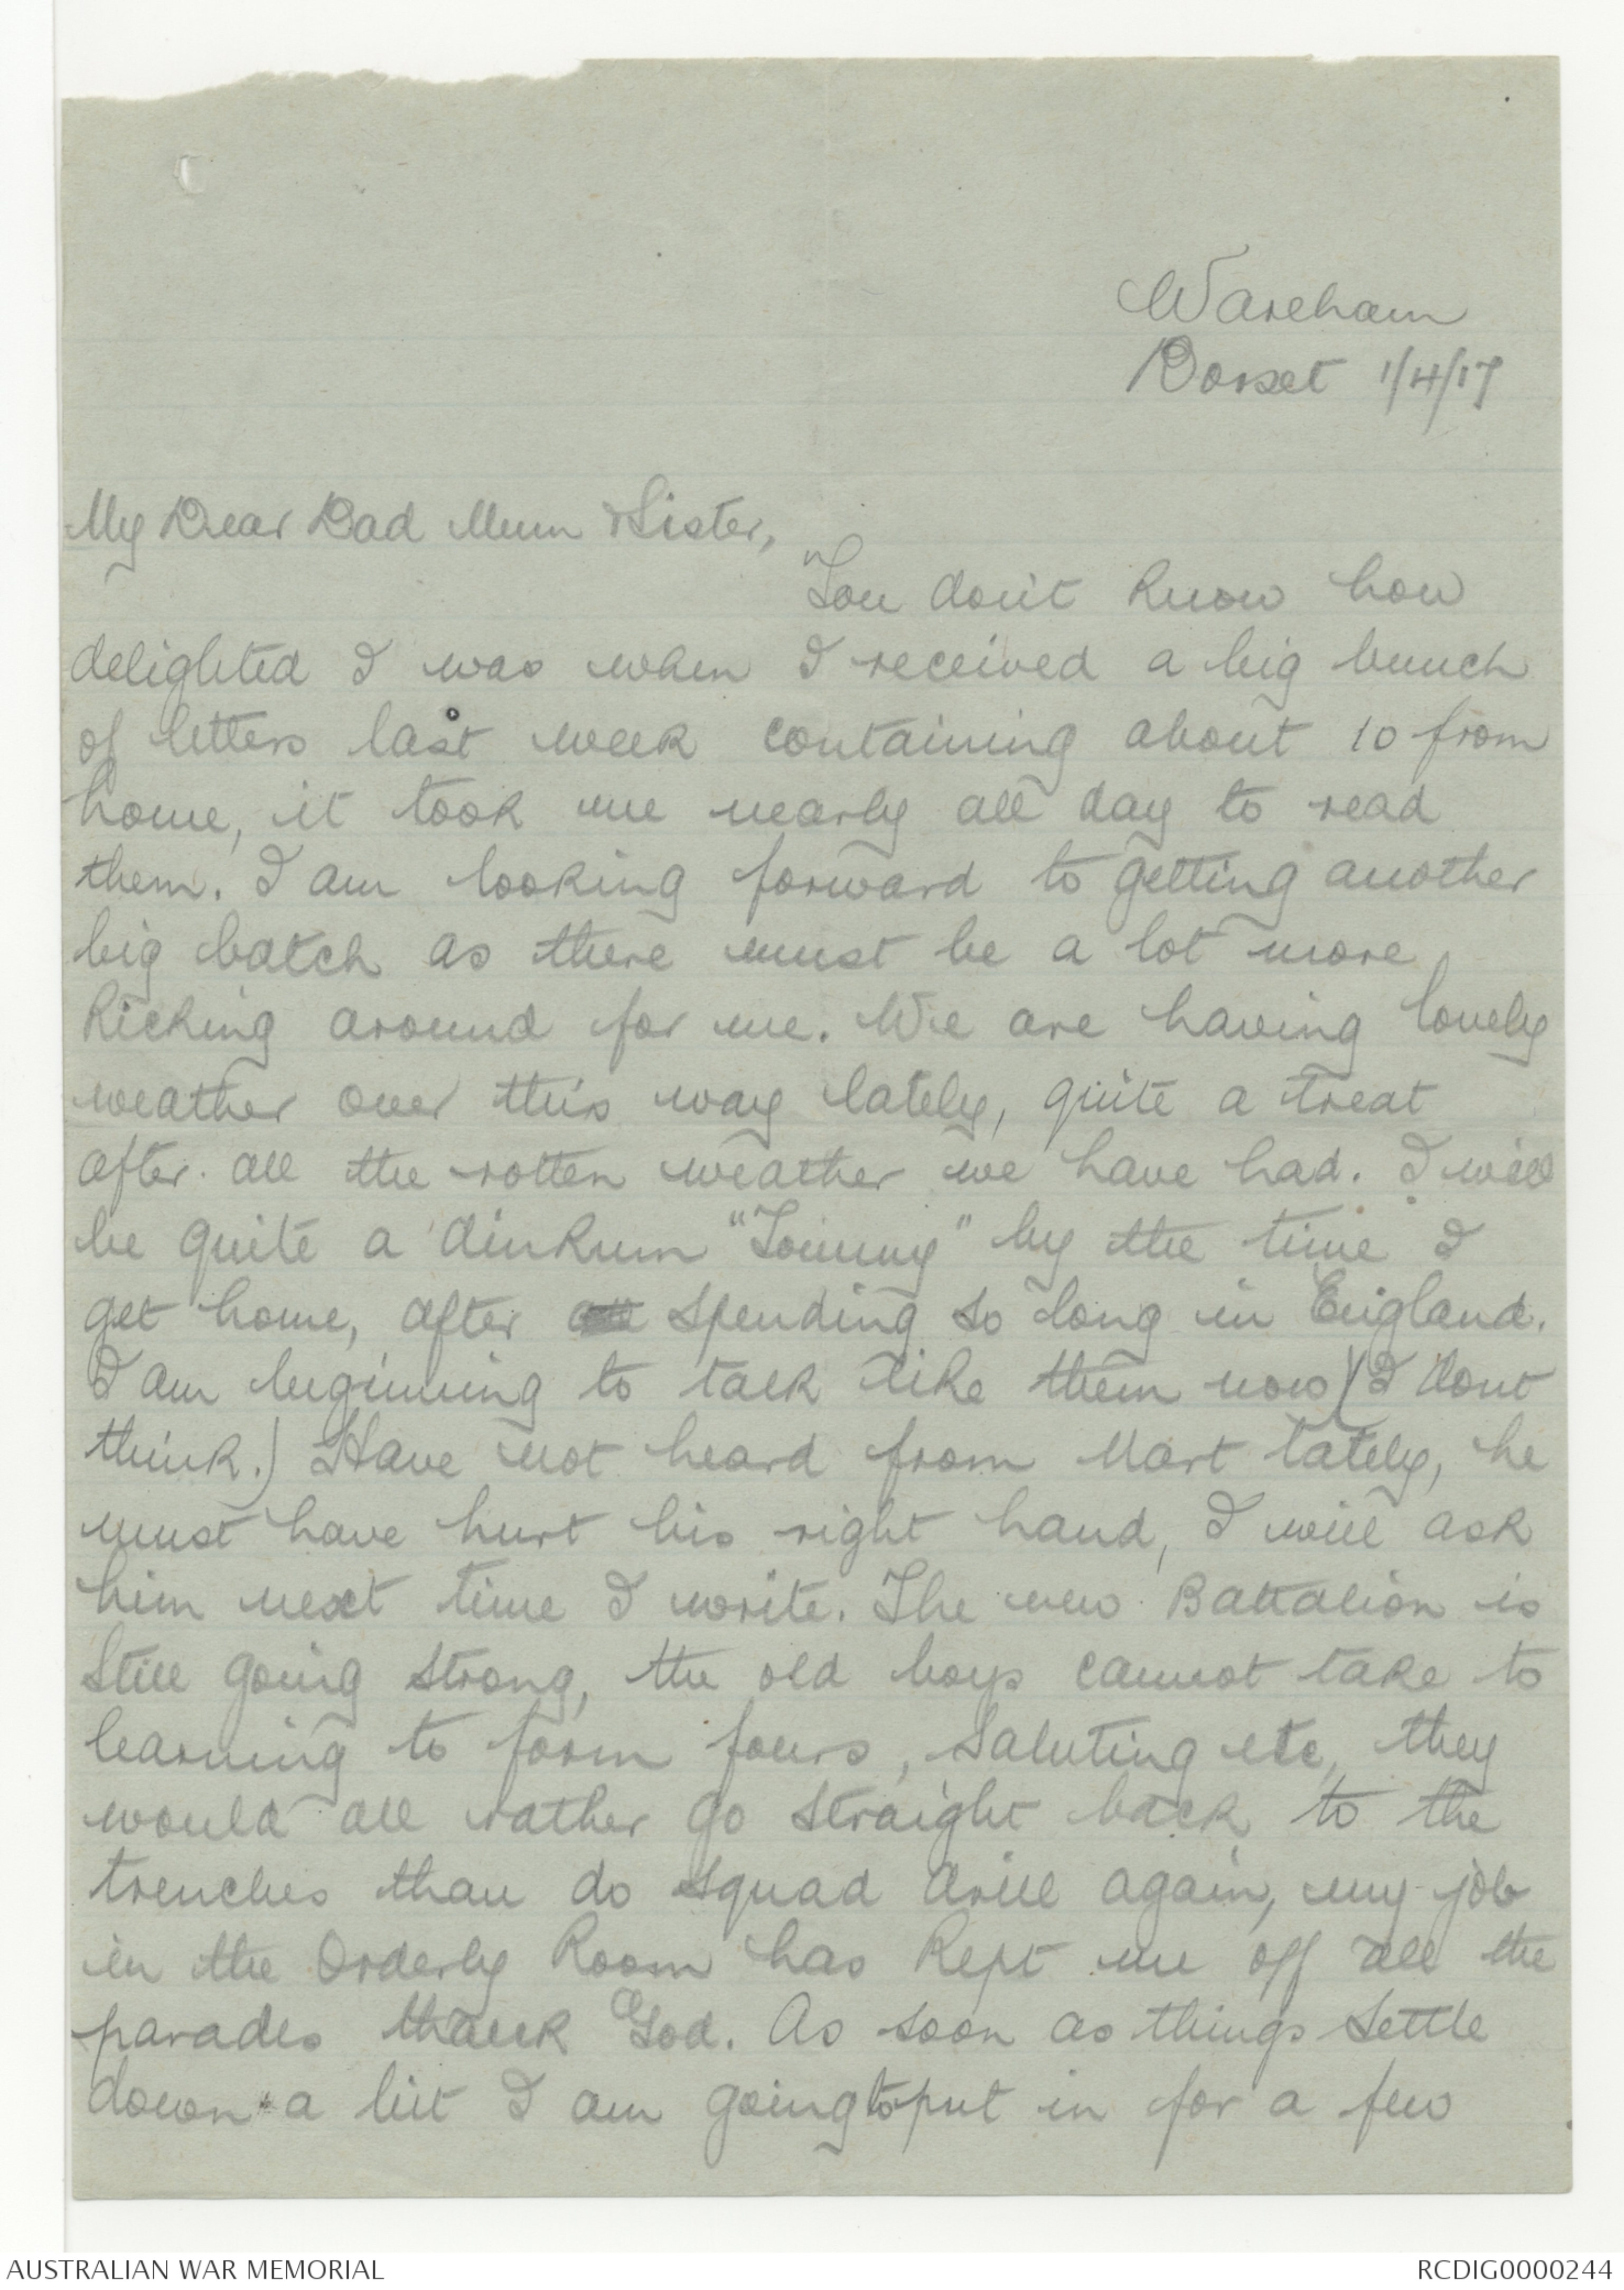 Wareham
Dorset 1/4/17
My Dear Dad Mum & Sister,
You don't know how
delighted I was when I received a big bunch
of letters last week containing about 10 from
home, it took me nearly all day to read
them. I am looking forward to getting another
big batch as there must be a lot more
kicking around for me. We are having lovely
weather over this way lately, quite a treat
after all the rotten weather we have had. I will
be quite a dinkum "Tommy" by the time I
get home, after spending so long in England.
I am beginning to talk like them now (I dont
think.) Have not heard from Mart lately, he
must have hurt his right hand, I will ask
him next time I write. The new Battalion is
still going strong, the old boys cannot take to
learning to form fours, saluting etc, they
would all rather go straight back to the
trenches than do squad drill again, my job
in the Orderly Room has kept me off all the
parades thank God. As soon as things settle
down a bit I am going to put in for a few
AUSTRALIAN WAR MEMORIAL
RCDIG0000244